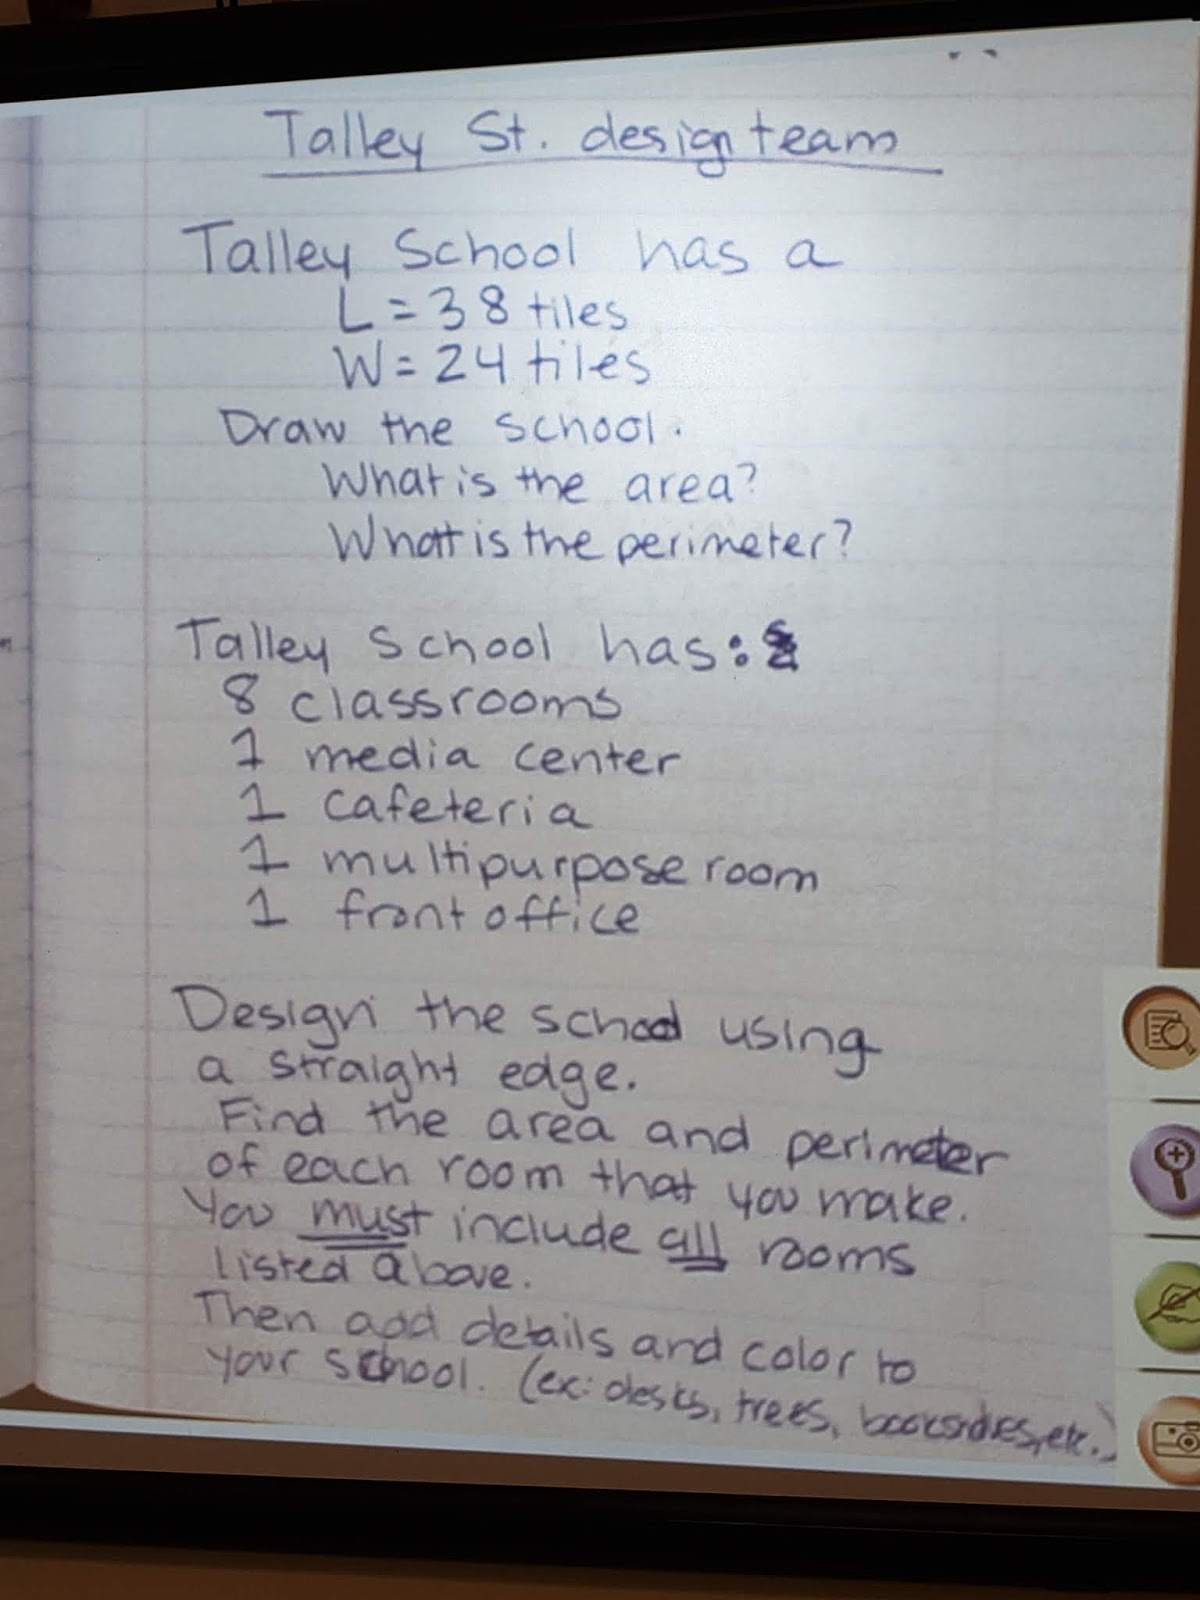 Talley St. design team
Talley School has a
L = 38 tiles
W = 24 tiles
Draw the school.
What is the area?
What is the perimeter?
Talley School has:
8 classrooms
1 media center
1 cafeteria
1 multipurpose room
1 front office
Design the school using
a straight edge.
Find the area and perimeter
of each room that you make.
You must include all rooms
listed above.
Then add details and color to
your school. (ex: desks, trees, bookshelves, etc.)